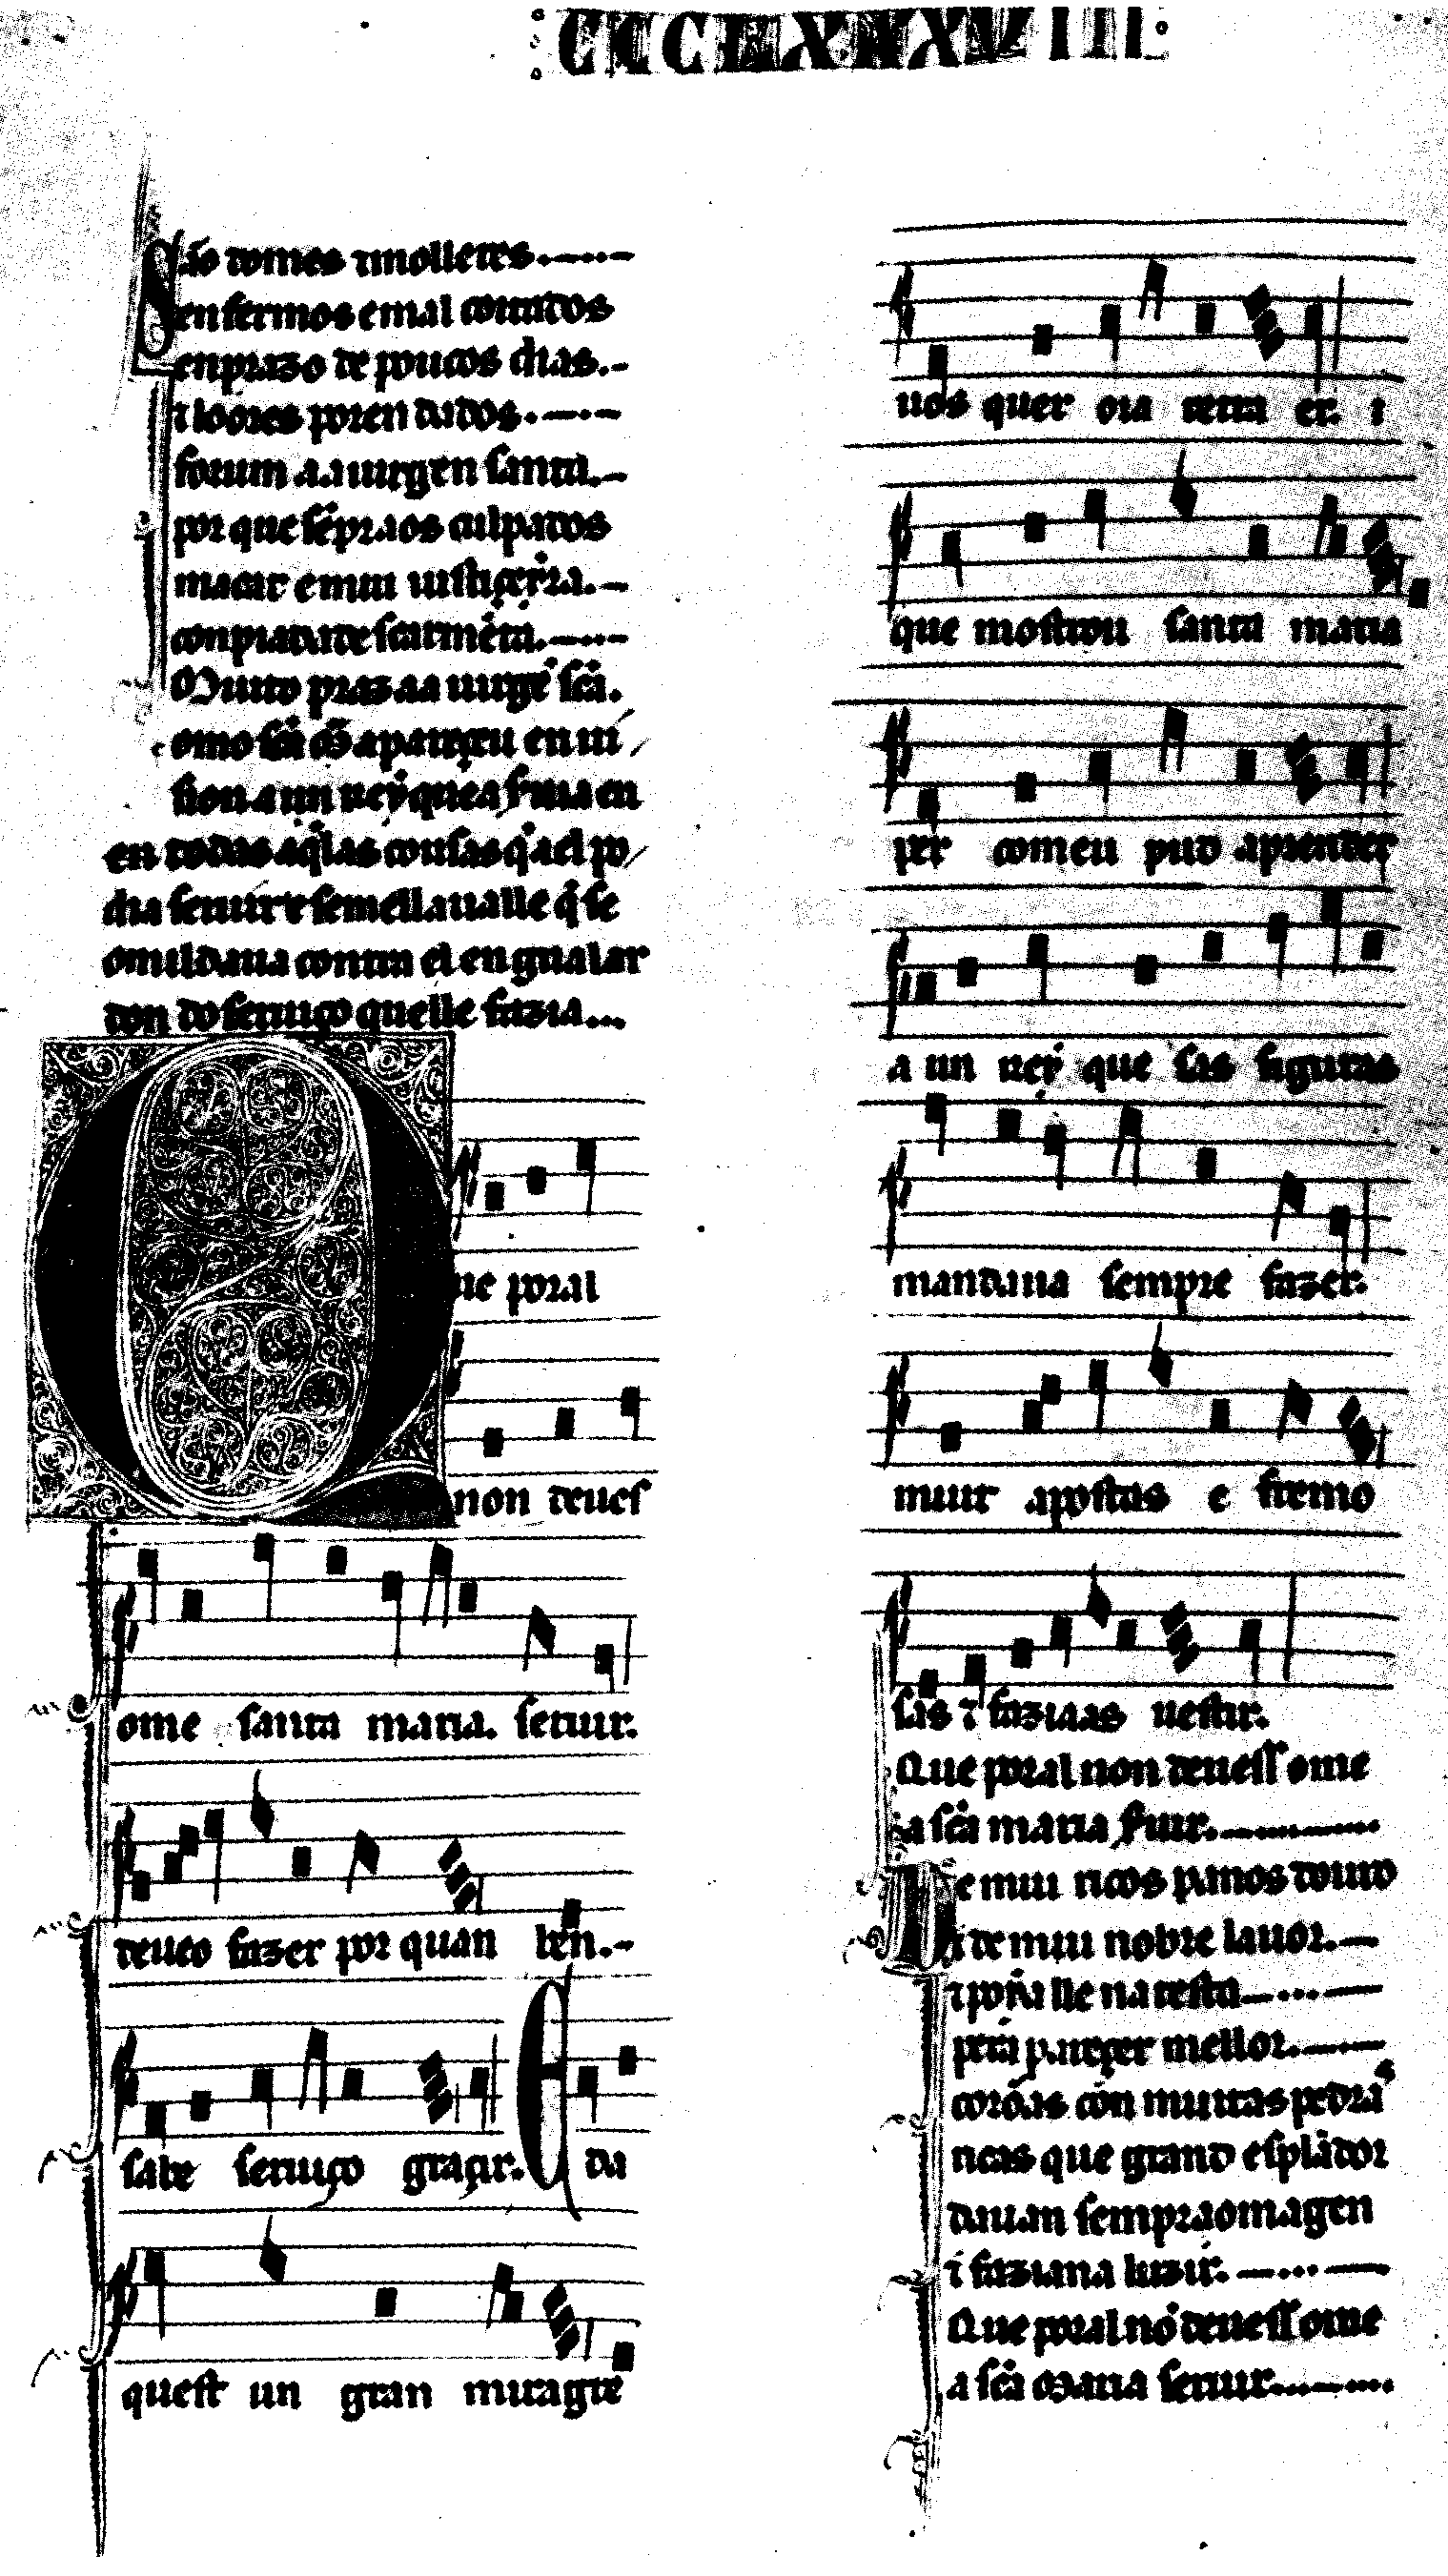 CCCLXXXVIII
São tornes τ molleres
enfermos e mal coitados
en prazo de poucos dias.
τ loores poren dados.
forum a a uirgen santa.
por que sẽpr aos culpados
macar e mui iustiçeira.
con piadade scarmẽta.
Muito praz aa uirgẽ scã.
en todas aq̃las cousas q̃ a el po
dia seruir τ semellaualle q̃ se
omildaua contra el en gualar
don do seruiço quelle fazia...
Que poral
non deuess
ome santa maria. seruir.
deueo fazer por quan ben.
sabe seruiço graçir. E da
quest un gran miragre
uos quer oia retraer. τ
que mostrou santa maria
per com eu pud aprender
a un rey que sas figuras
mandaua sempre fazer.
muit apostas e fremo
sas τ fazias uestir.
Que poral non deuess ome
a scã maria seruir.
De mui ricos panos douro
τ de mui nobre lauor.
τ poria lle na testa
pera pareçer mellor.
corõas cõn muitas pedras
ricas que grand esplãdor
dauan sempr a omagen
τ faziana luzir.
Que poral nõ deuess ome
a scã Maria seruir.